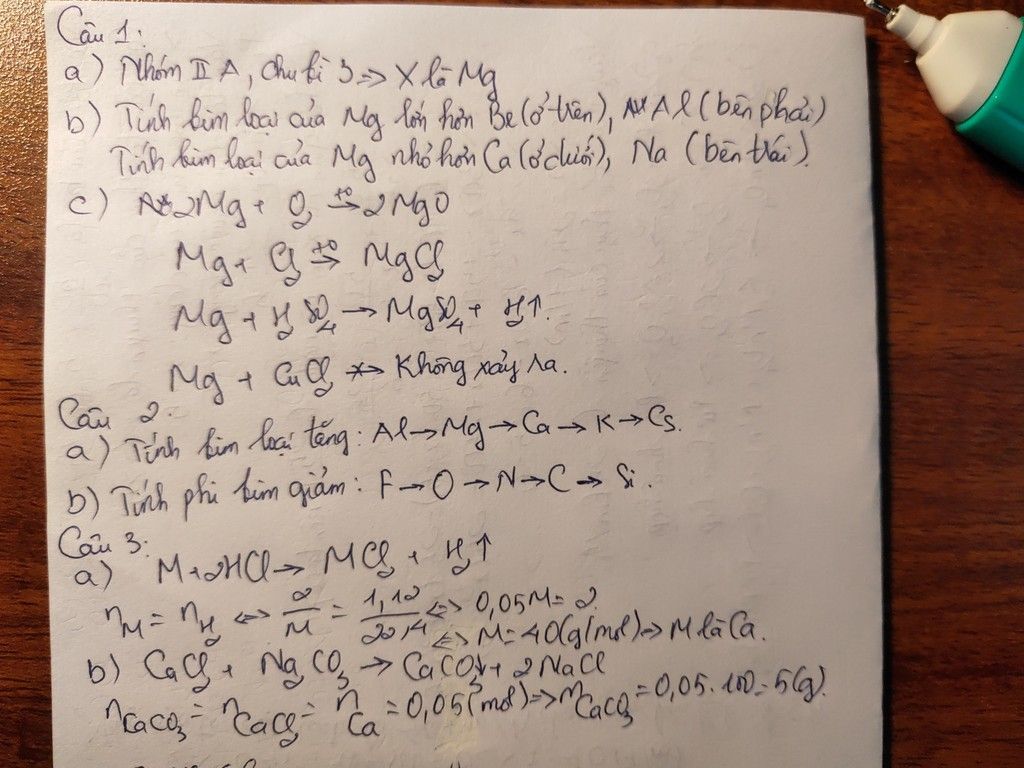 Câu 1:
a) Nhóm IIA, chu kì 3 => X là Mg
b) Tính kim loại của Mg lớn hơn Be (ở trên), Al (bên phải)
Tính kim loại của Mg nhỏ hơn Ca (ở dưới), Na (bên trái).
c) 2Mg + O₂ →(t⁰) 2MgO
Mg + Cl₂ →(t⁰) MgCl₂
Mg + H₂SO₄ → MgSO₄ + H₂↑.
Mg + CuCl₂ -x-> Không xảy ra.
Câu 2:
a) Tính kim loại tăng: Al → Mg → Ca → K → Cs.
b) Tính phi kim giảm: F → O → N → C → Si.
Câu 3:
a) M + 2HCl → MCl₂ + H₂↑
n_M = n_H₂ <=> 2/M = 1,12/22,4 <=> 0,05M = 2
<=> M = 40 (g/mol) => M là Ca.
b) CaCl₂ + Na₂CO₃ → CaCO₃↓ + 2NaCl
n_CaCO₃ = n_CaCl₂ = n_Ca = 0,05 (mol) => m_CaCO₃ = 0,05 . 100 = 5 (g).